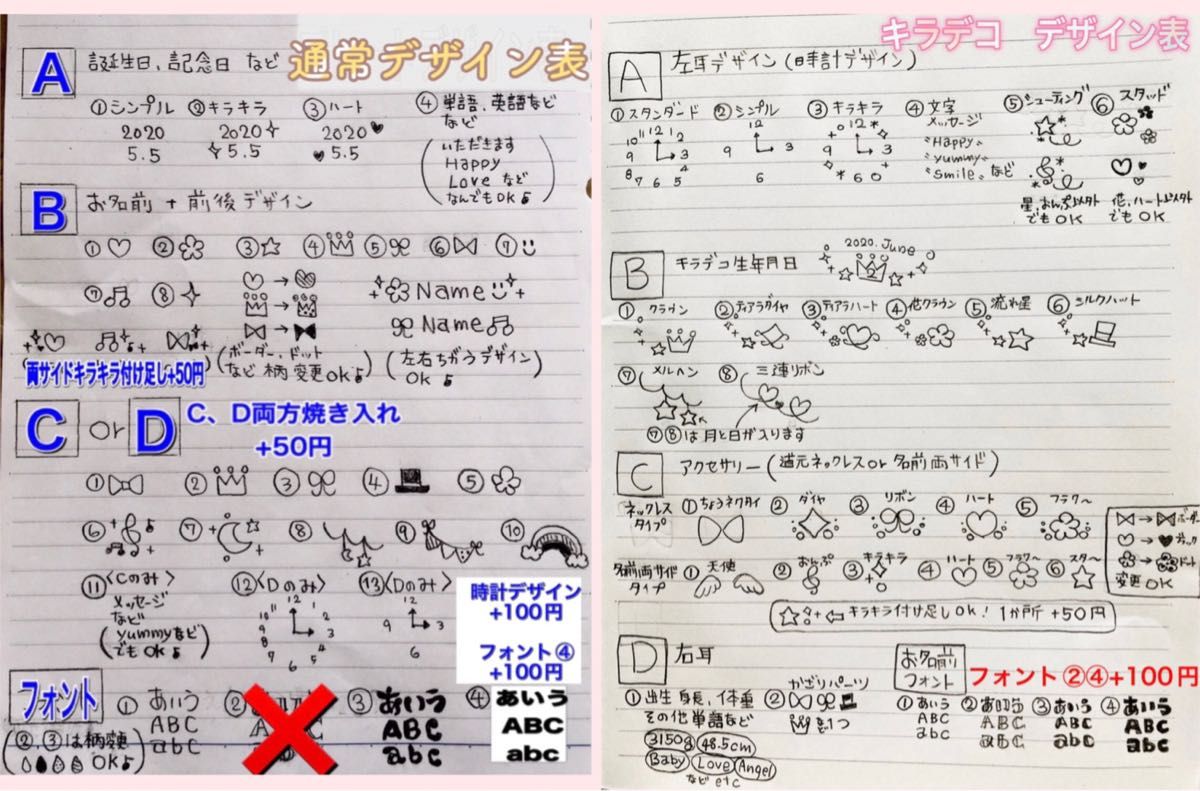 通常デザイン表
A 誕生日、記念日 など
①シンプル ②キラキラ ③ハート ④単語、英語など
など
2020 2020 2020
5.5 5.5 5.5
いただきます
Happy
Love など
なんでもOK♪
B お名前 + 前後デザイン
① ② ③ ④ ⑤ ⑥ ⑦
⑦ ⑧
Name
Name
両サイドキラキラ付け足し+50円
(ボーダー、ドット
など 柄 変更OK♪)
(左右ちがうデザイン
OK♪)
C or D C、D両方焼き入れ
+50円
① ② ③ ④ ⑤
⑥ ⑦ ⑧ ⑨ ⑩
⑪<Cのみ> ⑫<Dのみ> ⑬<Dのみ>
メッセージ
など
(yummyなど
でもOK♪)
12 1 2 3 4 5 6 7 8 9 10 11
12 3 6 9
時計デザイン
+100円
フォント④
+100円
フォント
① あいう
ABC
abc
②
③ あいう
ABC
abc
④ あいう
ABC
abc
(②、③は柄変更
OK♪)
キラデコ デザイン表
A 左耳デザイン(時計デザイン)
①スタンダード ②シンプル ③キラキラ ④文字 ⑤シューティング ⑥スタッド
10 11 12 1 2
9 3
8 7 6 5 4
12
9 3
6
12
9 3
6
メッセージ
"Happy"
"yummy"
"smile" など
星、おんぷ以外
でもOK
花、ハート以外
でもOK
B キラデコ生年月日
2020.June
2
①クラウン ②ティアラダイヤ ③ティアラハート ④花クラウン ⑤流れ星 ⑥シルクハット
⑦メルヘン ⑧三連リボン
⑦⑧は月と日が入ります
C アクセサリー(道元ネックレスor名前両サイド)
ネックレス
タイプ
①ちょうネクタイ ②ダイヤ ③リボン ④ハート ⑤フラワー
→ボーダー
→ブラック
→ドット
変更OK
名前両サイド
タイプ
①天使 ②おんぷ ③キラキラ ④ハート ⑤フラワー ⑥スター
← キラキラ付け足しOK! 1か所 +50円
D 右耳
①出生身長、体重
その他単語など
3150g 48.5cm
Baby Love Angel
など etc
②かざりパーツ
を1つ
お名前
フォント
フォント②④+100円
①あいう
ABC
abc
②あいう
ABC
abc
③あいう
ABC
abc
④あいう
ABC
abc